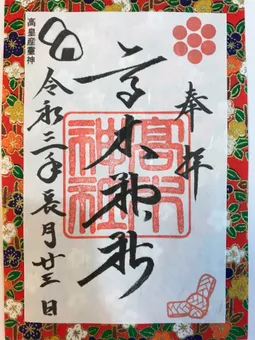 奉拝
高木神社
高木
神社
高皇産靈神
令和三年長月廿三日